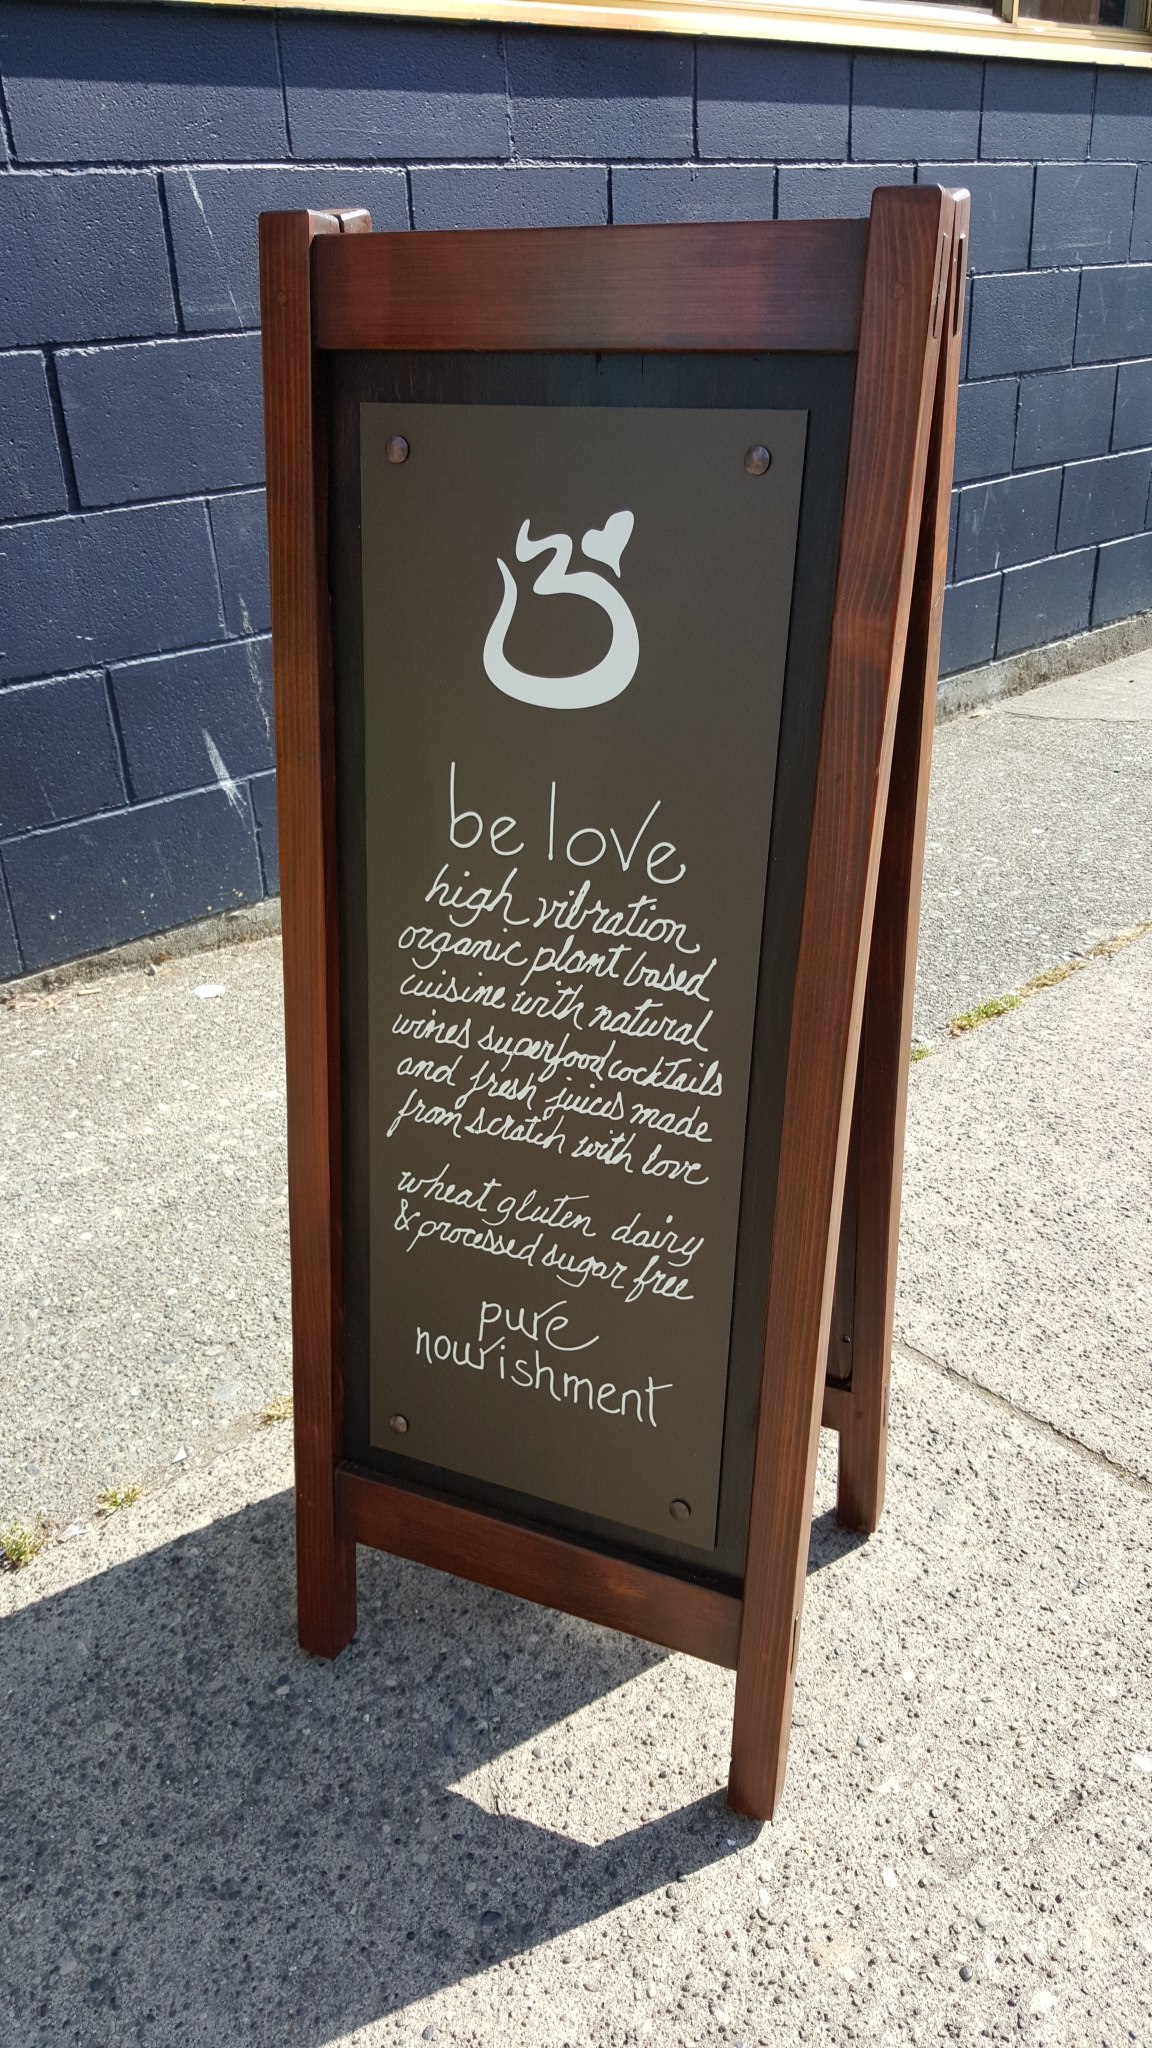 be love
high vibration
organic plant based
cuisine with natural
wines superfood cocktails
and fresh juices made
from scratch with love
wheat gluten dairy
& processed sugar free
pure
nourishment